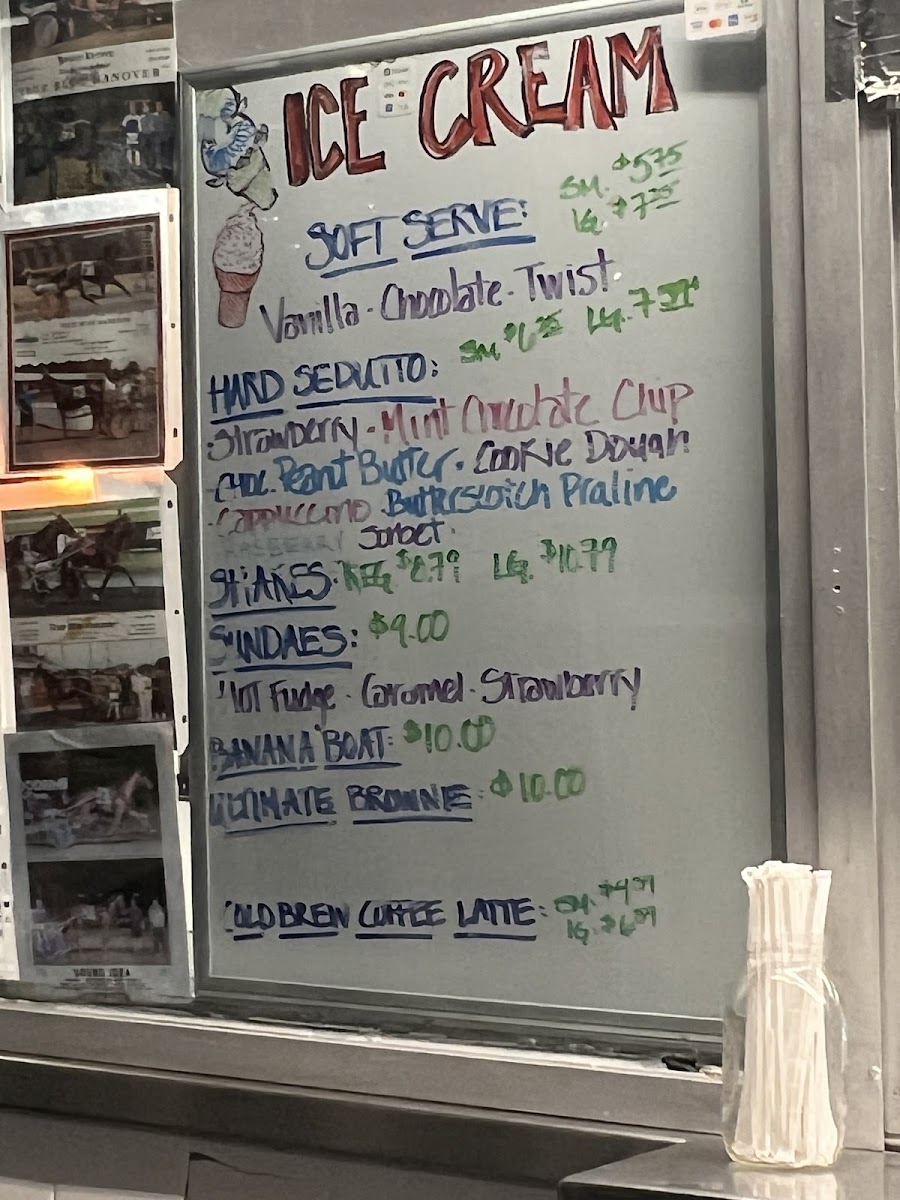 ICE CREAM
SOFT SERVE: SM. $5.75
LG. $7.25
Vanilla · Chocolate · Twist
HARD SEDUTTO: SM. LG.
Strawberry · Mint Chocolate Chip
CHOC. Peanut Butter · Cookie Dough
Cappuccino · Butterscotch Praline
RASBERRY Sorbet
SHAKES: REG $8.79 LG. $10.79
SUNDAES: $9.00
HOT Fudge · Caramel · Strawberry
BANANA BOAT: $10.00
ULTIMATE BROWNIE: $10.00
COLD BREW COFFEE LATTE: SM.
LG.
HANOVER